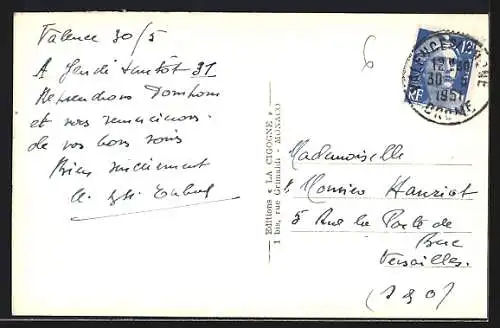 Valence 30/5
A Jeudi tantôt 31
Reprendrons Pompom
et vous remercions
de vos bons soins
Bien sincèrement
Editions « LA CIGOGNE »
1 bis, rue Grimaldi - MONACO
VALENCE
12
30
1951
DROME
RF
6
Mademoiselle
Monsieur Hanriot
5 Rue la Porte de
Buc
Versailles
(S & O)